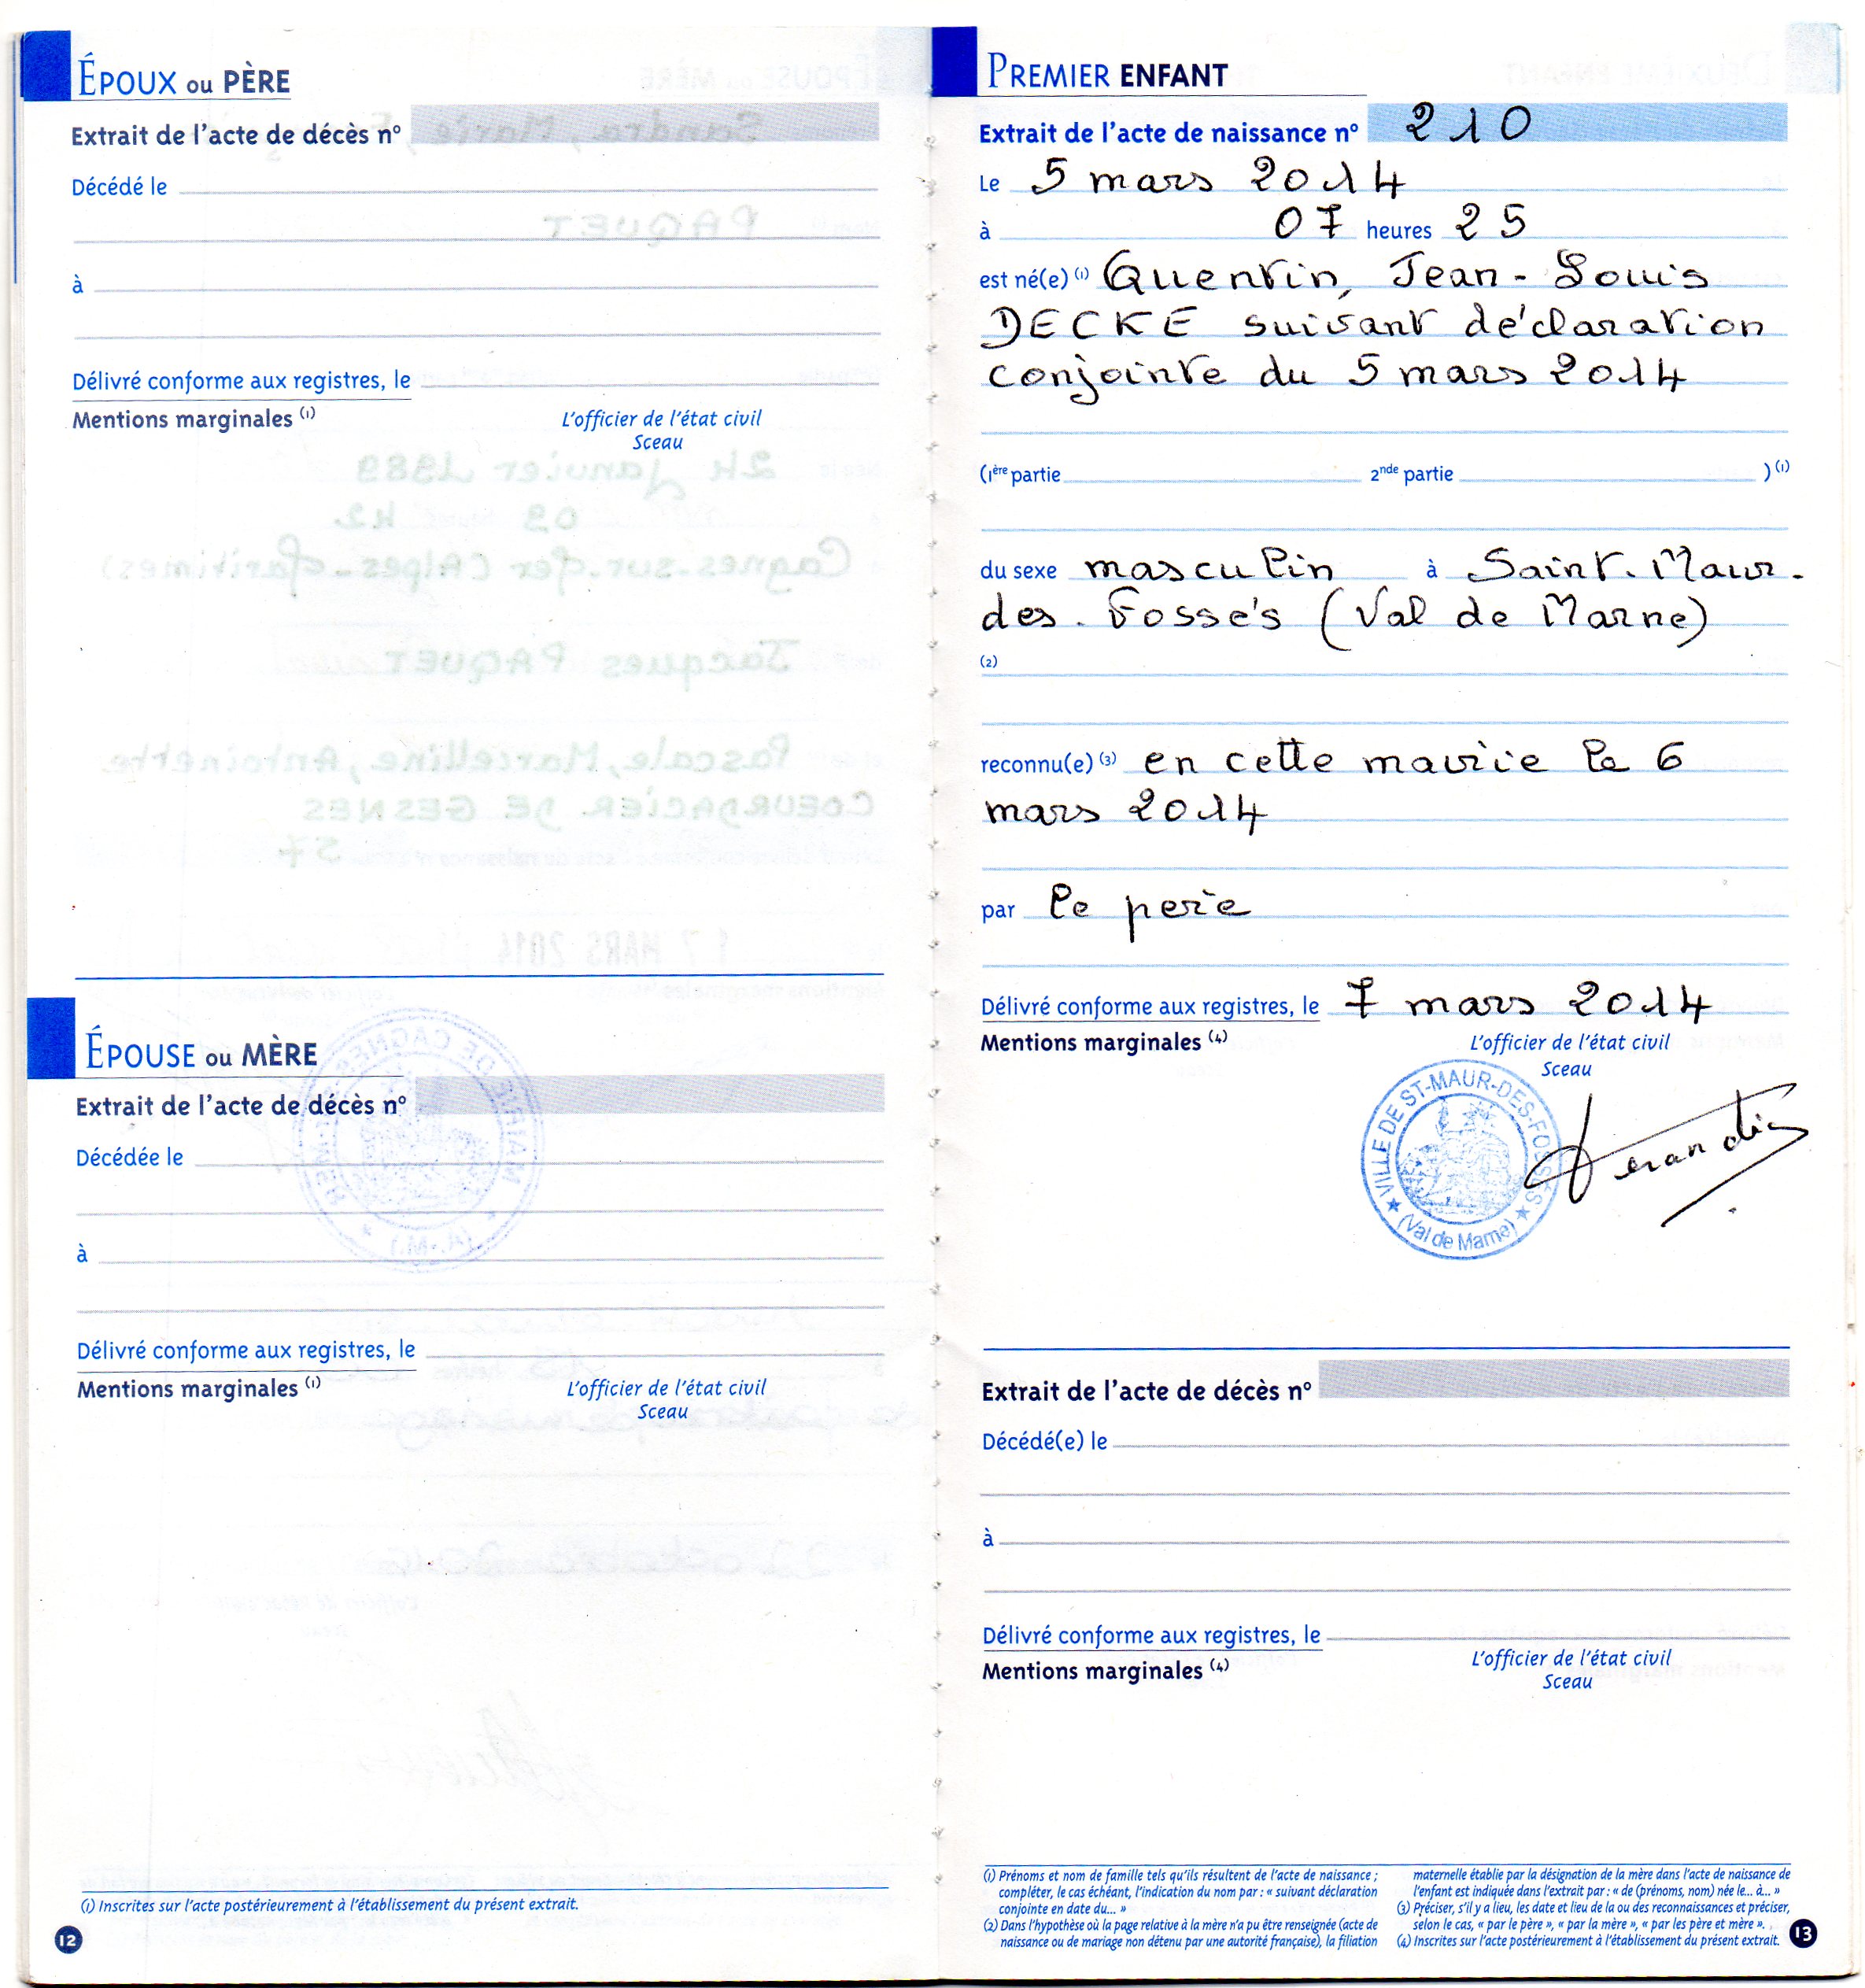 ÉPOUX ou PÈRE
Extrait de l'acte de décès n°
Décédé le
à
Délivré conforme aux registres, le
Mentions marginales (1)
L'officier de l'état civil
Sceau
ÉPOUSE ou MÈRE
Extrait de l'acte de décès n°
Décédée le
à
Délivré conforme aux registres, le
Mentions marginales (1)
L'officier de l'état civil
Sceau
(1) Inscrites sur l'acte postérieurement à l'établissement du présent extrait.
12
PREMIER ENFANT
Extrait de l'acte de naissance n° 210
Le 5 mars 2014
à 07 heures 25
est né(e) (1) Quentin, Jean-Louis
DECKE suivant déclaration
conjointe du 5 mars 2014
(1ère partie 2nde partie ) (1)
du sexe masculin à Saint-Maur-
des-Fossés (Val de Marne)
(2)
reconnu(e) (3) en cette mairie le 6
mars 2014
par le père
Délivré conforme aux registres, le 7 mars 2014
Mentions marginales (4)
L'officier de l'état civil
Sceau
VILLE DE ST-MAUR-DES-FOSSÉS
(Val de Marne)
Extrait de l'acte de décès n°
Décédé(e) le
à
Délivré conforme aux registres, le
Mentions marginales (4)
L'officier de l'état civil
Sceau
(1) Prénoms et nom de famille tels qu'ils résultent de l'acte de naissance ;
compléter, le cas échéant, l'indication du nom par : « suivant déclaration
conjointe en date du... »
(2) Dans l'hypothèse où la page relative à la mère n'a pu être renseignée (acte de
naissance ou de mariage non détenu par une autorité française), la filiation
maternelle établie par la désignation de la mère dans l'acte de naissance de
l'enfant est indiquée dans l'extrait par : « de (prénoms, nom) née le... à... »
(3) Préciser, s'il y a lieu, les date et lieu de la ou des reconnaissances et préciser,
selon le cas, « par le père », « par la mère », « par les père et mère ».
(4) Inscrites sur l'acte postérieurement à l'établissement du présent extrait.
13